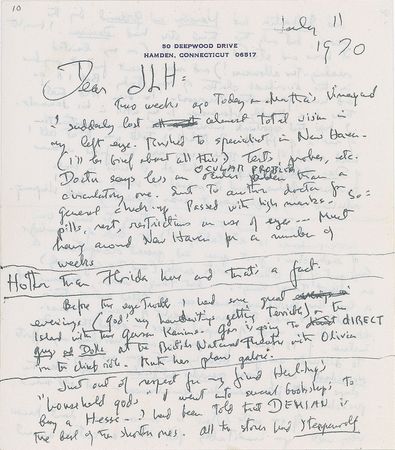 10
50 DEEPWOOD DRIVE
HAMDEN, CONNECTICUT 06517
July 11
1970
Dear JLH:
Two weeks ago today on Martha's Vineyard
I suddenly lost almost total vision in
my left eye. Rushed to specialist in New Haven.
(I'll be brief about all this) Tests, probes, etc.
OCULAR PROBLEM
Doctor says less an than a
circulatory one. Sent to another doctor for
general check-up. Passed with high marks. So:
pills, rest, restrictions on use of eyes — Must
hang around New Haven for a number of
weeks
Hotter than Florida here and that's a fact.
Before the eye trouble I had some great
evenings (God! my handwriting's getting terrible) on the
Island with the Garson Kanins. Gar is going to DIRECT
at the British National Theatre with Olivier
in the role. Ruth has plans galore.
Just out of respect for my friend Hartley's
"household gods" I went into several bookshops to
buy a Hesse — I had been told that DEMIAN is
the best of the shorter ones. All the stores had Steppenwolf